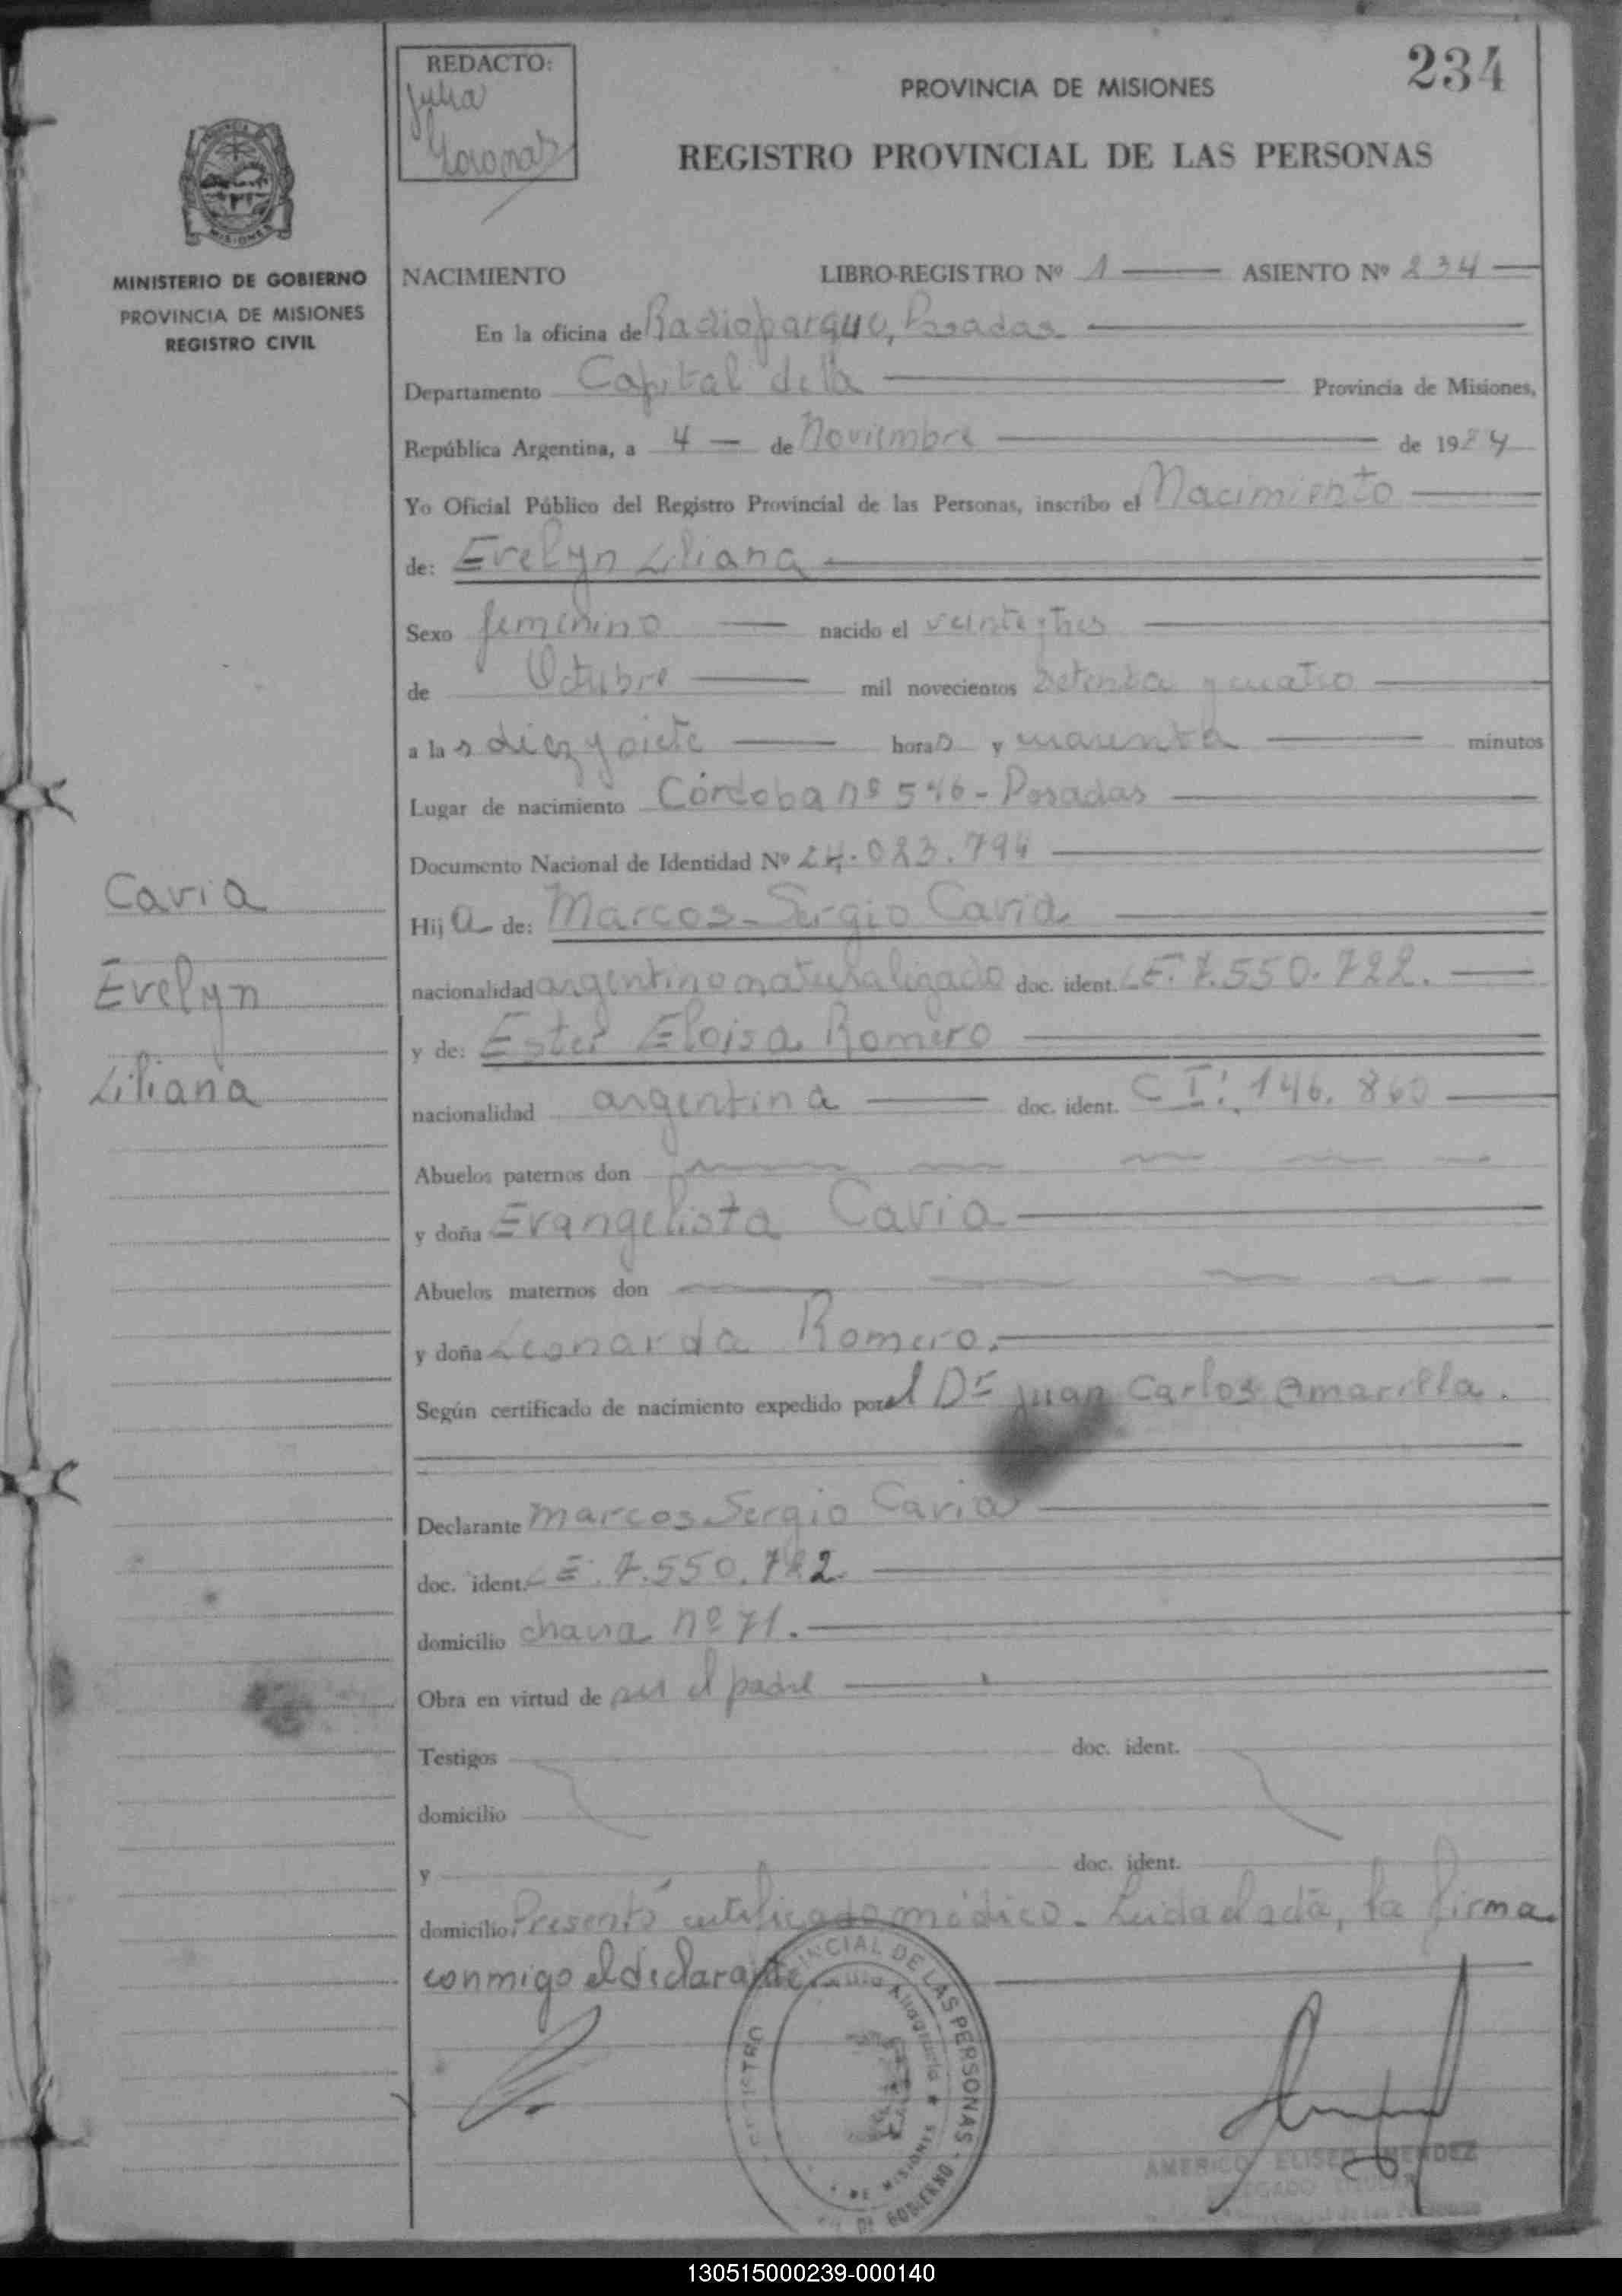 234
REDACTO:
Julia
PROVINCIA DE MISIONES
REGISTRO PROVINCIAL DE LAS PERSONAS
MISIONES
MINISTERIO DE GOBIERNO
PROVINCIA DE MISIONES
REGISTRO CIVIL
NACIMIENTO LIBRO-REGISTRO Nº 1 ASIENTO Nº 234
En la oficina de Radioparque, Posadas
Departamento Capital de la Provincia de Misiones,
República Argentina, a 4 de Noviembre de 19
Yo Oficial Público del Registro Provincial de las Personas, inscribo el Nacimiento
de: Evelyn Liliana
Sexo femenino nacido el veintitres
de Octubre mil novecientos setenta y cuatro
a las diez y siete horas y cuarenta minutos
Lugar de nacimiento Córdoba nº 546 - Posadas
Documento Nacional de Identidad Nº 24.023.794
Cavia
Evelyn
Liliana
Hija de: Marcos Sergio Cavia
nacionalidad argentino naturalizado doc. ident. LE. 7.550.722.
y de: Ester Eloisa Romero
nacionalidad argentina doc. ident. C I: 146.860
Abuelos paternos don
y doña Evangelista Cavia
Abuelos maternos don
y doña Leonarda Romero.
Según certificado de nacimiento expedido por el Dr Juan Carlos Amarilla.
Declarante Marcos Sergio Cavia
doc. ident. LE. 7.550.722.
domicilio chacra nº 71.
Obra en virtud de ser el padre
Testigos doc. ident.
domicilio
y doc. ident.
domicilio Presentó certificado médico. Leida el acta, la firma
conmigo el declarante.
PROVINCIAL DE LAS PERSONAS
DE MISIONES
GOBIERNO
AMERICO ELISEO MENDEZ
130515000239-000140